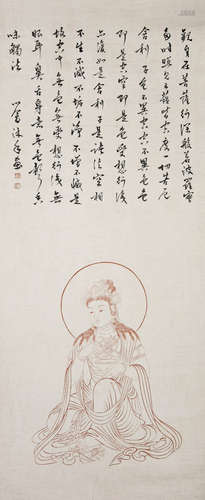 觀自在菩薩行深般若波羅蜜
多時照見五蘊皆空度一切苦厄
舍利子色不異空空不異色色
即是空空即是色受想行識亦
復如是舍利子是諸法空相
不生不滅不垢不淨不增不減
是故空中無色無受想行識無
眼耳鼻舌身意無色聲香
味觸法
溥沐手畫